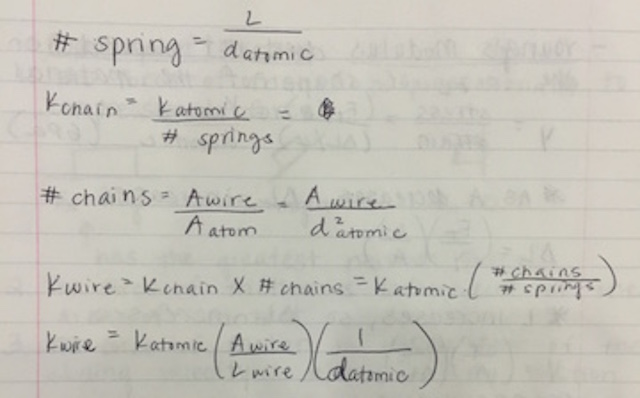 # spring = L / d atomic
K chain = K atomic / # springs =
# chains = A wire / A atom = A wire / d² atomic
K wire = K chain X # chains = K atomic (# chains / # springs)
K wire = K atomic (A wire / L wire) (1 / d atomic)